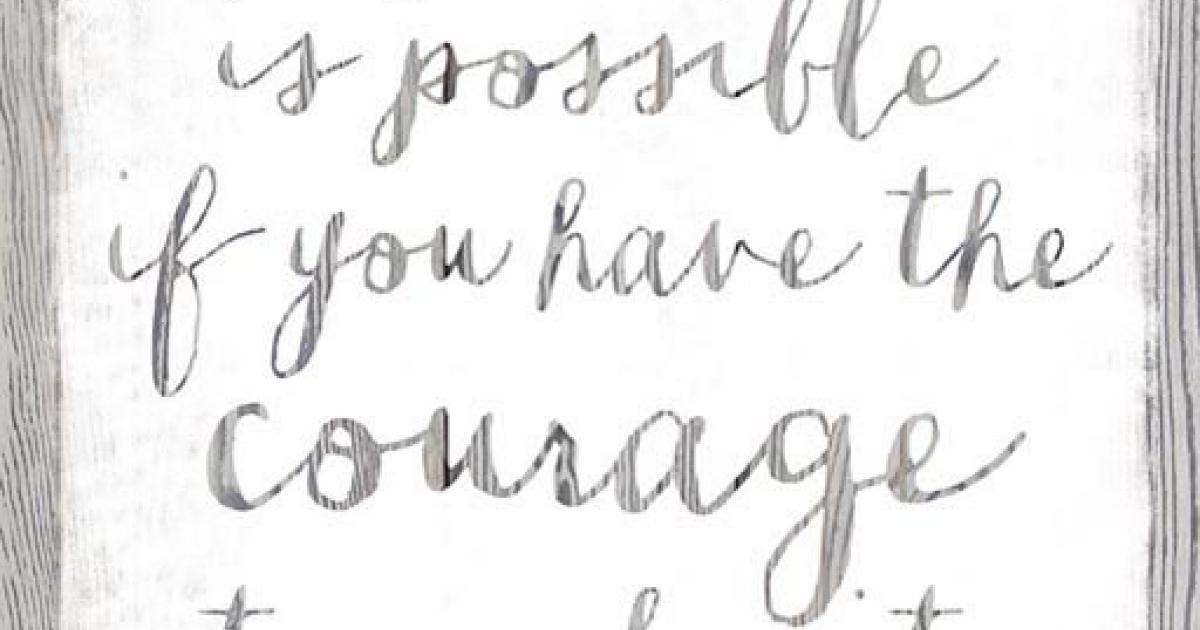 is possible
if you have the
courage